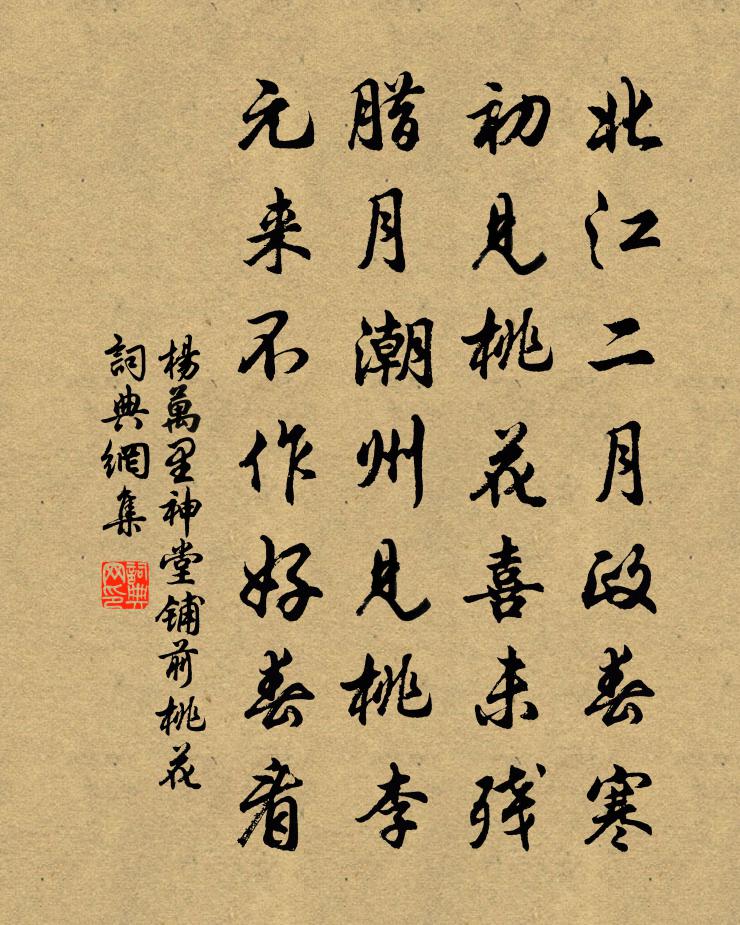 北江二月政春寒
初见桃花喜未残
腊月潮州见桃李
元来不作好春看
楊萬里神堂鋪前桃花
詞典網集
詞典网印